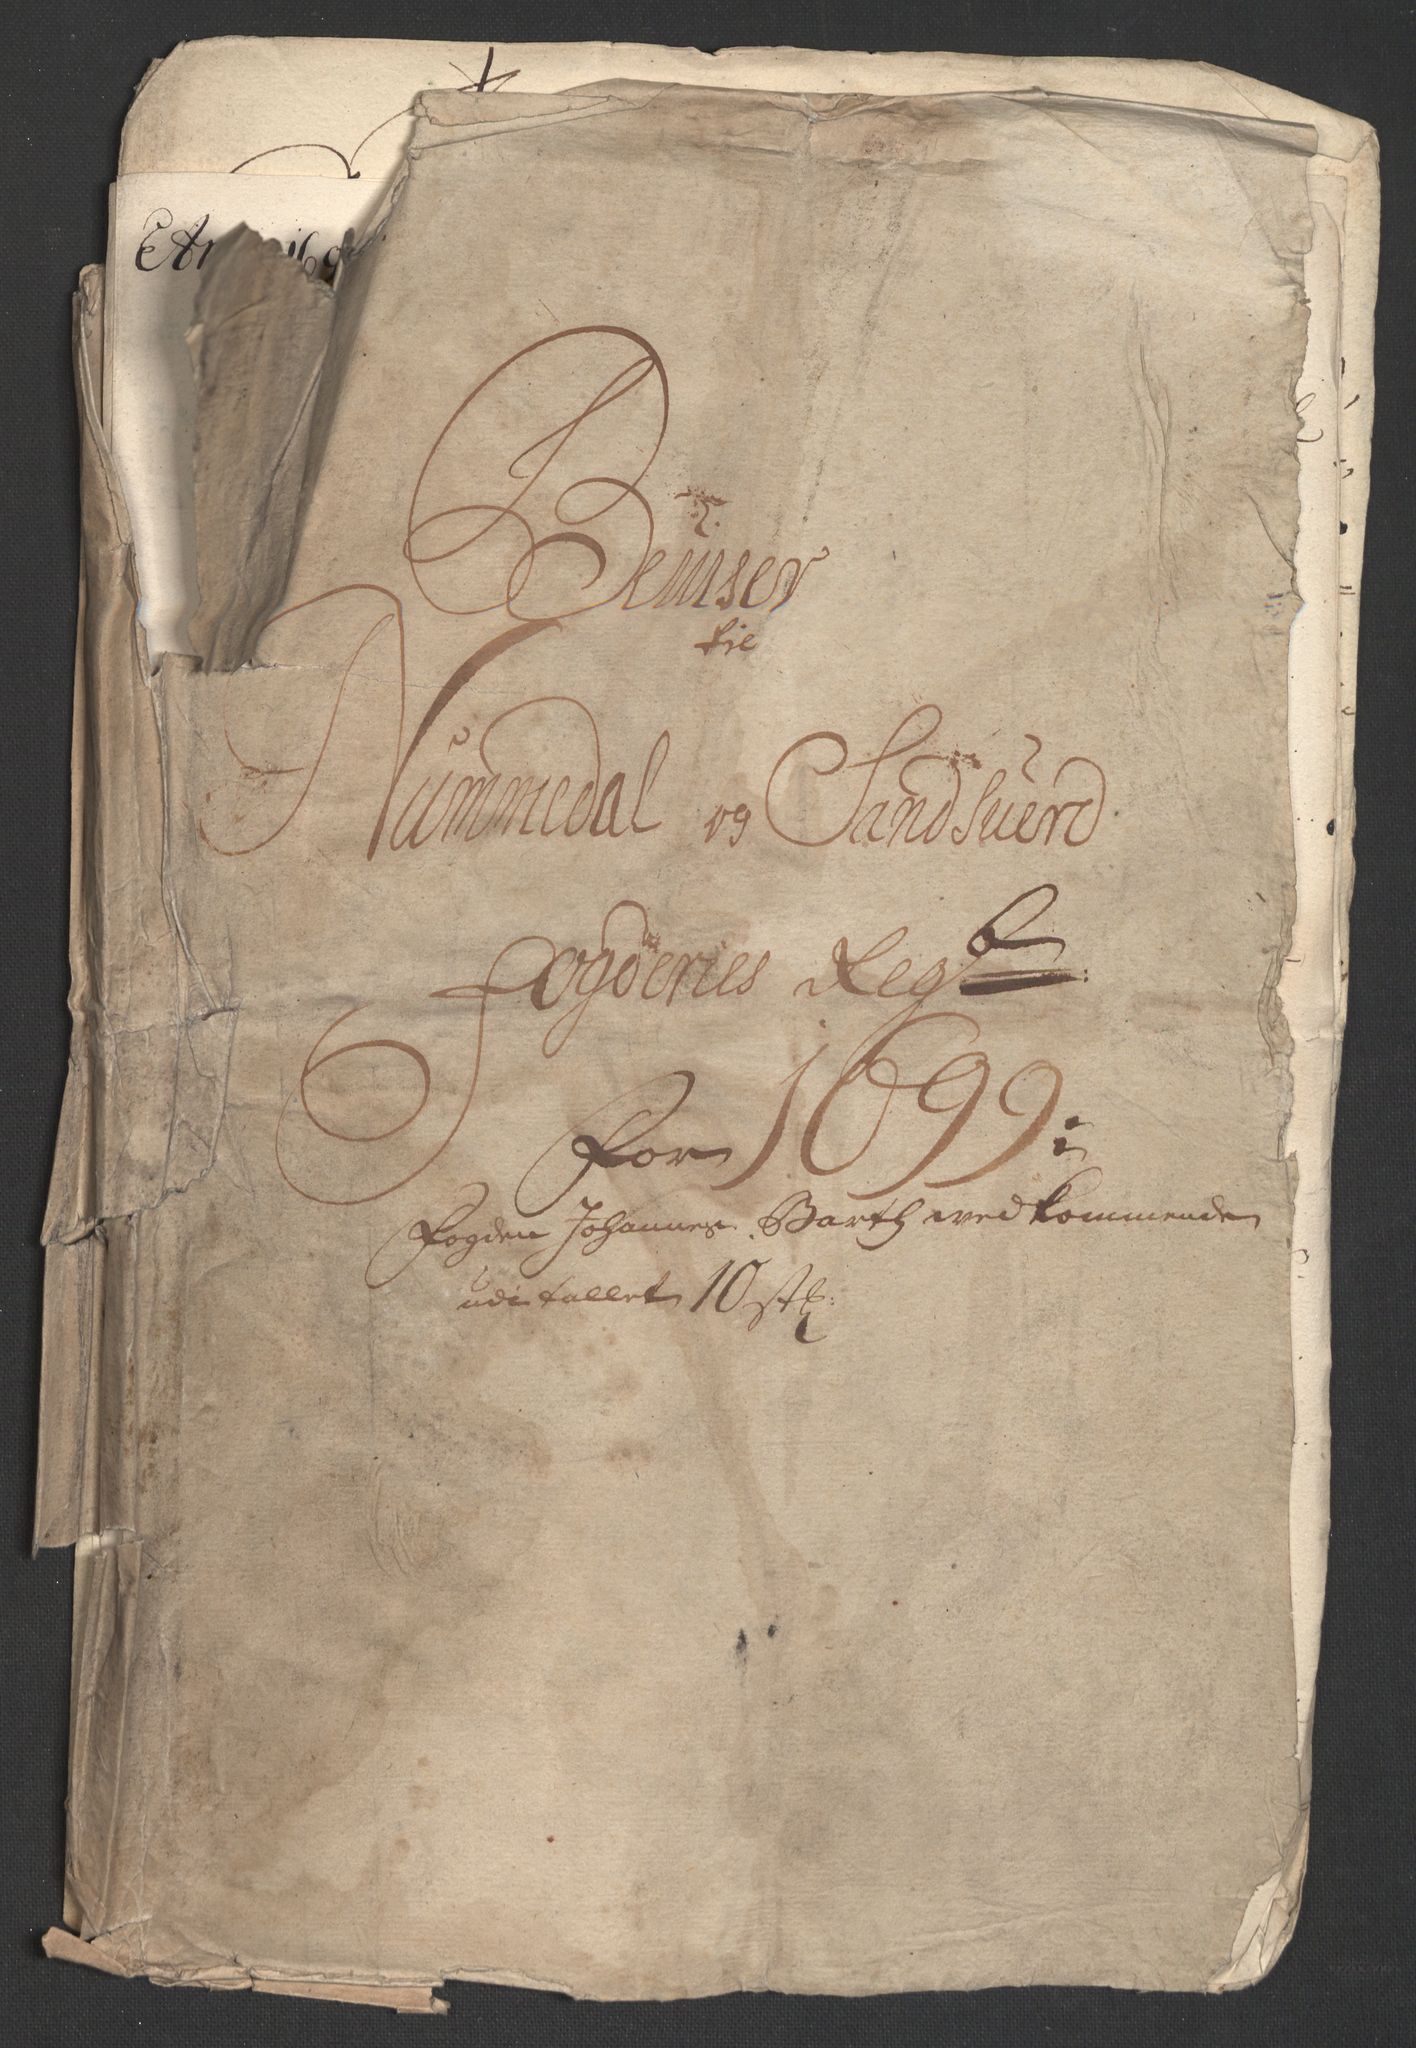 Beuiser
til
Nummedal og Sandsuerd
Fogderies Regsb:
for 1699:
Fogden Johannes Barth wedkommende
udi tallet 10 stk: